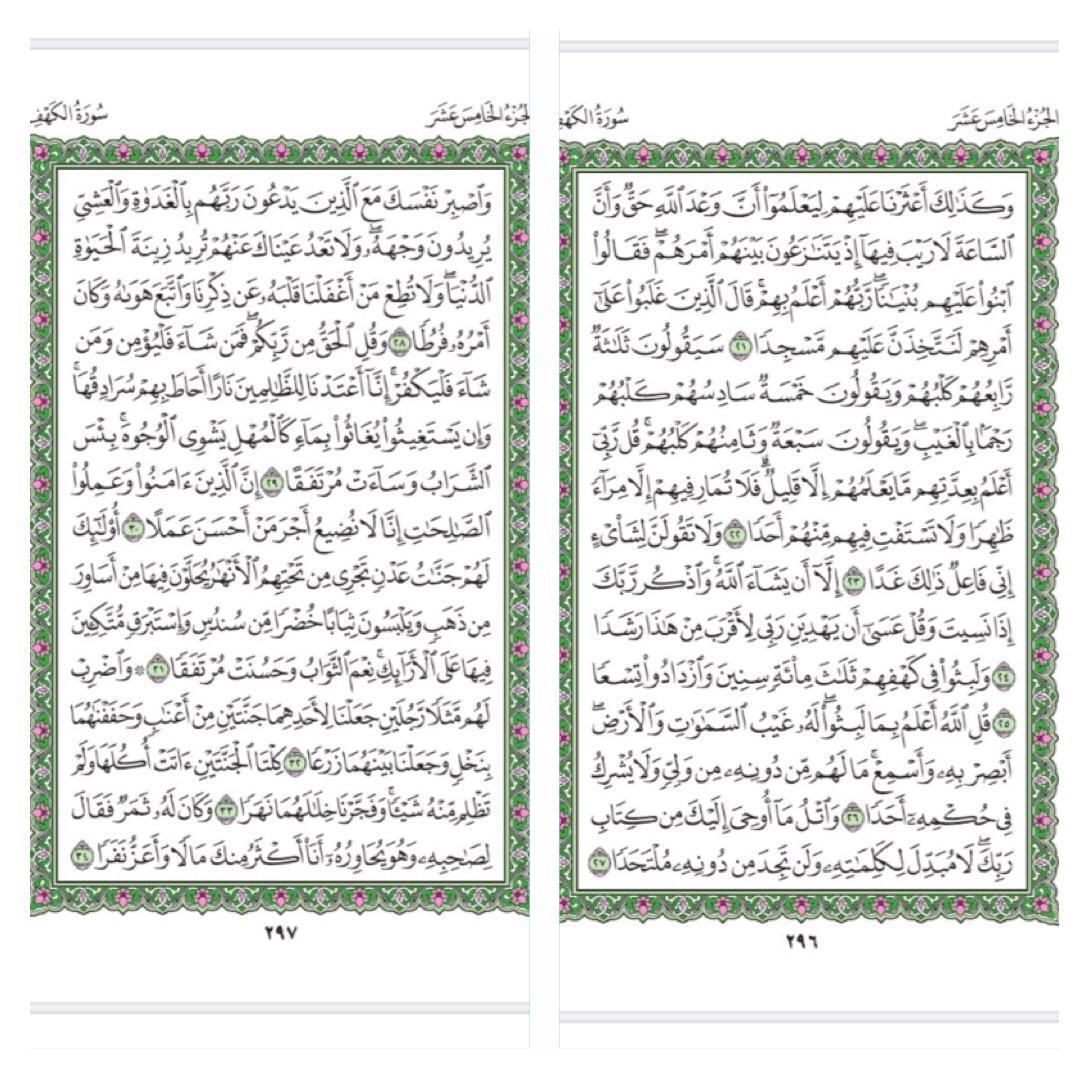 الجُزْءُ الخَامِسَ عَشَرَ
سُورَةُ الكَهْفِ
وَكَذَٰلِكَ أَعْثَرْنَا عَلَيْهِمْ لِيَعْلَمُوٓا۟ أَنَّ وَعْدَ ٱللَّهِ حَقٌّ وَأَنَّ
ٱلسَّاعَةَ لَا رَيْبَ فِيهَآ إِذْ يَتَنَٰزَعُونَ بَيْنَهُمْ أَمْرَهُمْ ۖ فَقَالُوا۟
ٱبْنُوا۟ عَلَيْهِم بُنْيَٰنًا ۖ رَّبُّهُمْ أَعْلَمُ بِهِمْ ۚ قَالَ ٱلَّذِينَ غَلَبُوا۟ عَلَىٰٓ
أَمْرِهِمْ لَنَتَّخِذَنَّ عَلَيْهِم مَّسْجِدًا ٢١ سَيَقُولُونَ ثَلَٰثَةٌ
رَّابِعُهُمْ كَلْبُهُمْ وَيَقُولُونَ خَمْسَةٌ سَادِسُهُمْ كَلْبُهُمْ
رَجْمًۢا بِٱلْغَيْبِ ۖ وَيَقُولُونَ سَبْعَةٌ وَثَامِنُهُمْ كَلْبُهُمْ ۚ قُل رَّبِّىٓ
أَعْلَمُ بِعِدَّتِهِم مَّا يَعْلَمُهُمْ إِلَّا قَلِيلٌ ۗ فَلَا تُمَارِ فِيهِمْ إِلَّا مِرَآءً
ظَٰهِرًا وَلَا تَسْتَفْتِ فِيهِم مِّنْهُمْ أَحَدًا ٢٢ وَلَا تَقُولَنَّ لِشَا۟ىْءٍ
إِنِّى فَاعِلٌ ذَٰلِكَ غَدًا ٢٣ إِلَّآ أَن يَشَآءَ ٱللَّهُ ۚ وَٱذْكُر رَّبَّكَ
إِذَا نَسِيتَ وَقُلْ عَسَىٰٓ أَن يَهْدِيَنِ رَبِّى لِأَقْرَبَ مِنْ هَٰذَا رَشَدًا
٢٤ وَلَبِثُوا۟ فِى كَهْفِهِمْ ثَلَٰثَ مِا۟ئَةٍ سِنِينَ وَٱزْدَادُوا۟ تِسْعًا
٢٥ قُلِ ٱللَّهُ أَعْلَمُ بِمَا لَبِثُوا۟ ۖ لَهُۥ غَيْبُ ٱلسَّمَٰوَٰتِ وَٱلْأَرْضِ ۖ
أَبْصِرْ بِهِۦ وَأَسْمِعْ ۚ مَا لَهُم مِّن دُونِهِۦ مِن وَلِىٍّ وَلَا يُشْرِكُ
فِى حُكْمِهِۦٓ أَحَدًا ٢٦ وَٱتْلُ مَآ أُوحِىَ إِلَيْكَ مِن كِتَابِ
رَبِّكَ ۖ لَا مُبَدِّلَ لِكَلِمَٰتِهِۦ وَلَن تَجِدَ مِن دُونِهِۦ مُلْتَحَدًا ٢٧
٢٩٦
الجُزْءُ الخَامِسَ عَشَرَ
سُورَةُ الكَهْفِ
وَٱصْبِرْ نَفْسَكَ مَعَ ٱلَّذِينَ يَدْعُونَ رَبَّهُم بِٱلْغَدَوٰةِ وَٱلْعَشِىِّ
يُرِيدُونَ وَجْهَهُۥ ۖ وَلَا تَعْدُ عَيْنَاكَ عَنْهُمْ تُرِيدُ زِينَةَ ٱلْحَيَوٰةِ
ٱلدُّنْيَا ۖ وَلَا تُطِعْ مَنْ أَغْفَلْنَا قَلْبَهُۥ عَن ذِكْرِنَا وَٱتَّبَعَ هَوَىٰهُ وَكَانَ
أَمْرُهُۥ فُرُطًا ٢٨ وَقُلِ ٱلْحَقُّ مِن رَّبِّكُمْ ۖ فَمَن شَآءَ فَلْيُؤْمِن وَمَن
شَآءَ فَلْيَكْفُرْ ۚ إِنَّآ أَعْتَدْنَا لِلظَّٰلِمِينَ نَارًا أَحَاطَ بِهِمْ سُرَادِقُهَا ۚ
وَإِن يَسْتَغِيثُوا۟ يُغَاثُوا۟ بِمَآءٍ كَٱلْمُهْلِ يَشْوِى ٱلْوُجُوهَ ۚ بِئْسَ
ٱلشَّرَابُ وَسَآءَتْ مُرْتَفَقًا ٢٩ إِنَّ ٱلَّذِينَ ءَامَنُوا۟ وَعَمِلُوا۟
ٱلصَّٰلِحَٰتِ إِنَّا لَا نُضِيعُ أَجْرَ مَنْ أَحْسَنَ عَمَلًا ٣٠ أُو۟لَٰٓئِكَ
لَهُمْ جَنَّٰتُ عَدْنٍ تَجْرِى مِن تَحْتِهِمُ ٱلْأَنْهَٰرُ يُحَلَّوْنَ فِيهَا مِنْ أَسَاوِرَ
مِن ذَهَبٍ وَيَلْبَسُونَ ثِيَابًا خُضْرًا مِّن سُندُسٍ وَإِسْتَبْرَقٍ مُّتَّكِـِٔينَ
فِيهَا عَلَى ٱلْأَرَآئِكِ ۚ نِعْمَ ٱلثَّوَابُ وَحَسُنَتْ مُرْتَفَقًا ٣١ ۞ وَٱضْرِبْ
لَهُم مَّثَلًا رَّجُلَيْنِ جَعَلْنَا لِأَحَدِهِمَا جَنَّتَيْنِ مِنْ أَعْنَٰبٍ وَحَفَفْنَٰهُمَا
بِنَخْلٍ وَجَعَلْنَا بَيْنَهُمَا زَرْعًا ٣٢ كِلْتَا ٱلْجَنَّتَيْنِ ءَاتَتْ أُكُلَهَا وَلَمْ
تَظْلِم مِّنْهُ شَيْـًٔا ۚ وَفَجَّرْنَا خِلَٰلَهُمَا نَهَرًا ٣٣ وَكَانَ لَهُۥ ثَمَرٌ فَقَالَ
لِصَٰحِبِهِۦ وَهُوَ يُحَاوِرُهُۥٓ أَنَا۠ أَكْثَرُ مِنكَ مَالًا وَأَعَزُّ نَفَرًا ٣٤
٢٩٧